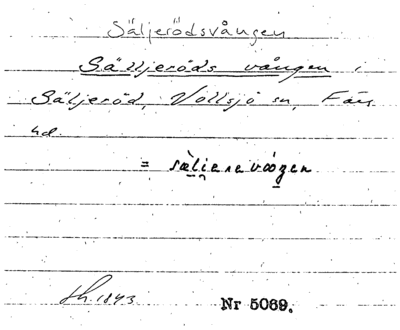 Säljerödsvången
Sälljeröds vången,
Säljeröd, Vollsjö sn, Färs
hd.
= sälierevågen
Lh. 1843
Nr 5069.